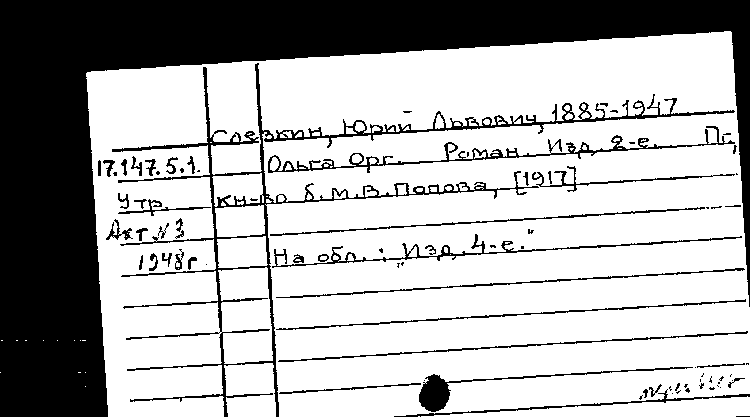 Слезкин, Юрий Львович, 1885-1947
17.147.5.1. Ольга Орг. Роман. Изд. 2-е. Пг,
Утр. кн-во б. М.В.Попова, [1917]
Акт №3
1948г На обл.: "Изд. 4-е."